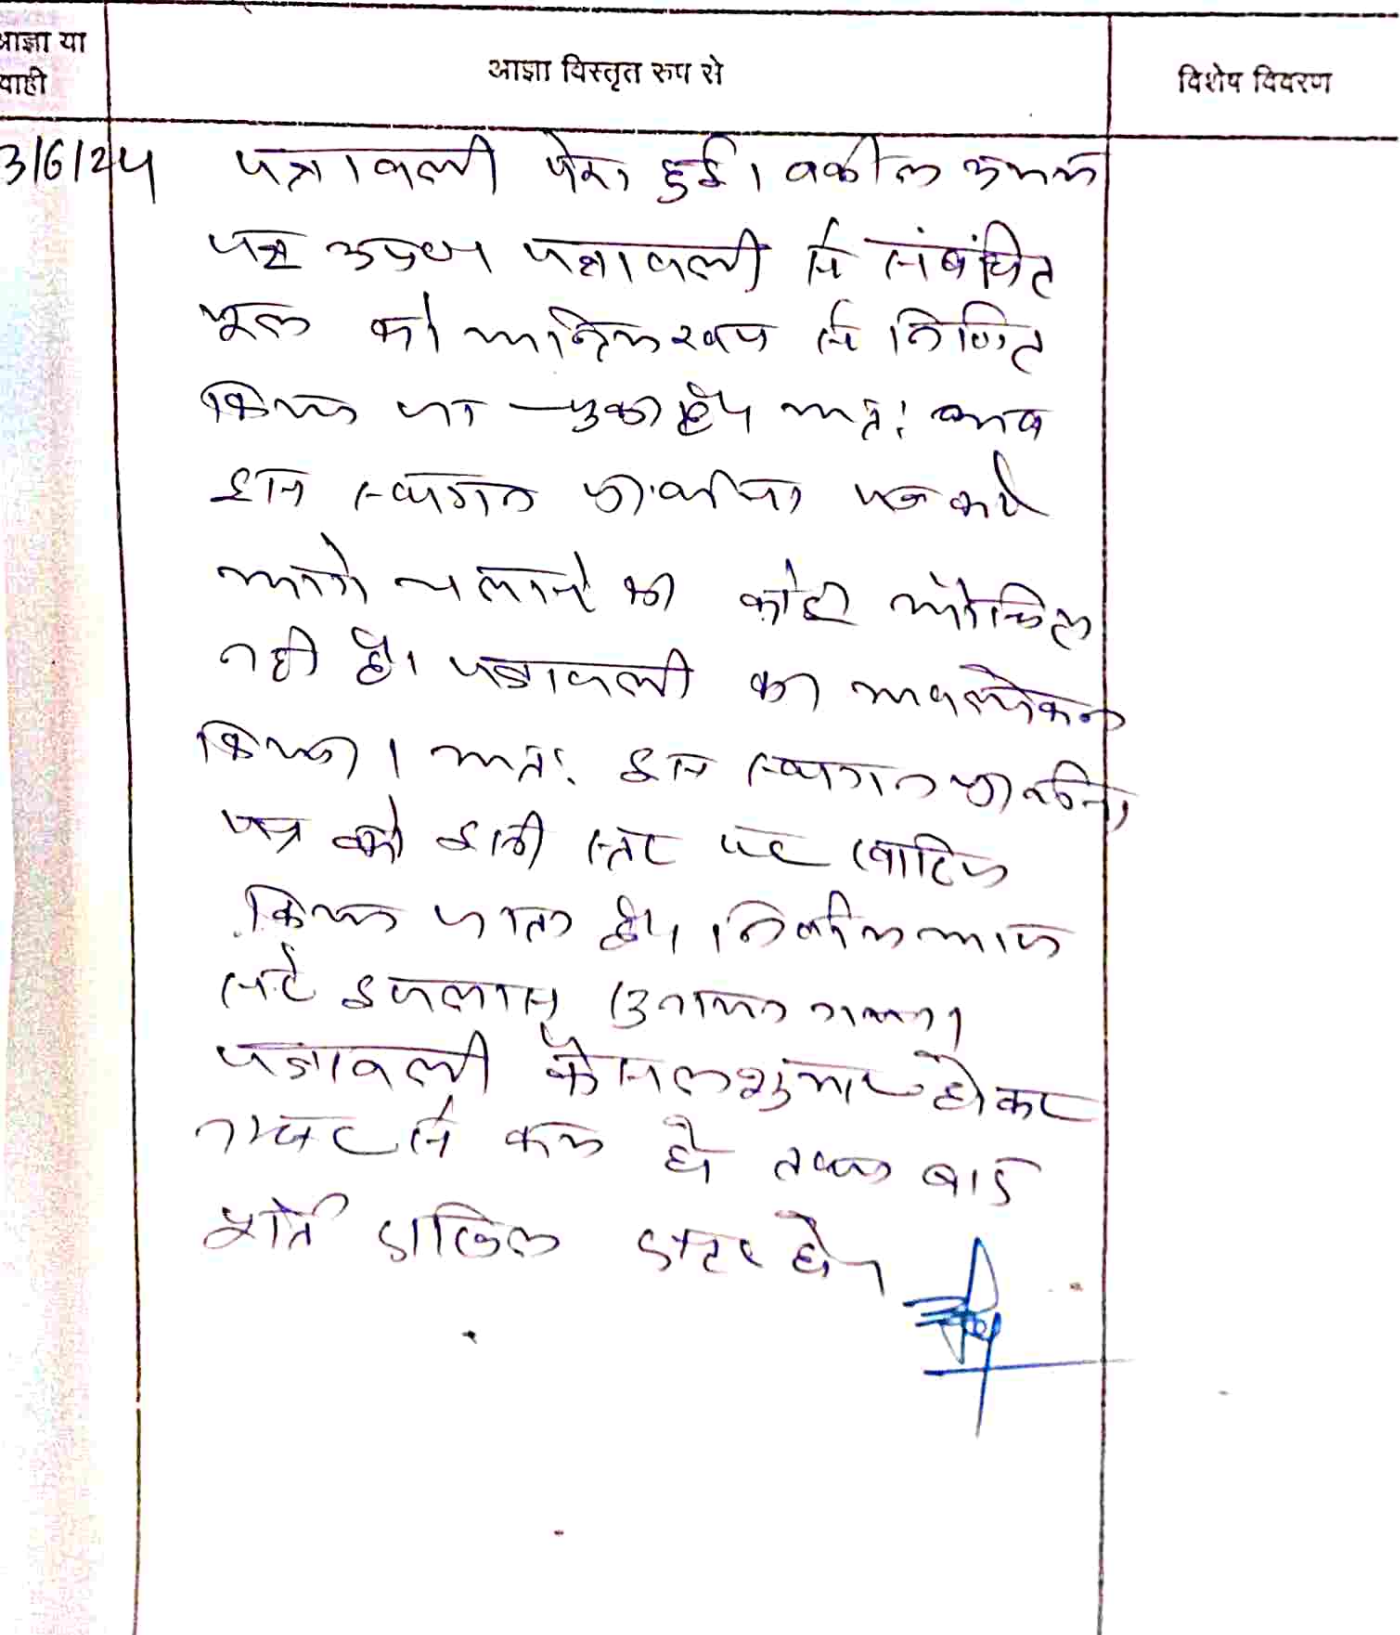 आज्ञा या
वाही
आज्ञा विस्तृत रूप से
विशेष विवरण
3/6/24 पत्रावली पेश हुई। वकील उभय
पक्ष उप० पत्रावली से संबंधित
मूल को अन्तिम रूप से निर्णित
किया जा चुका है। अतः अब
इस स्थगन प्रार्थना पत्र को
आगे चलाने का कोई औचित्य
नहीं है। पत्रावली का अवलोकन
किया। अतः इस स्थगन प्रार्थना
पत्र को इसी स्तर पर खारिज
किया जाता है। निर्णय आज
सरे इजलास सुनाया गया।
पत्रावली फैसल शुमार होकर
नम्बर से कम हो तथा बाद
पूर्ति दाखिल दफ्तर हो।